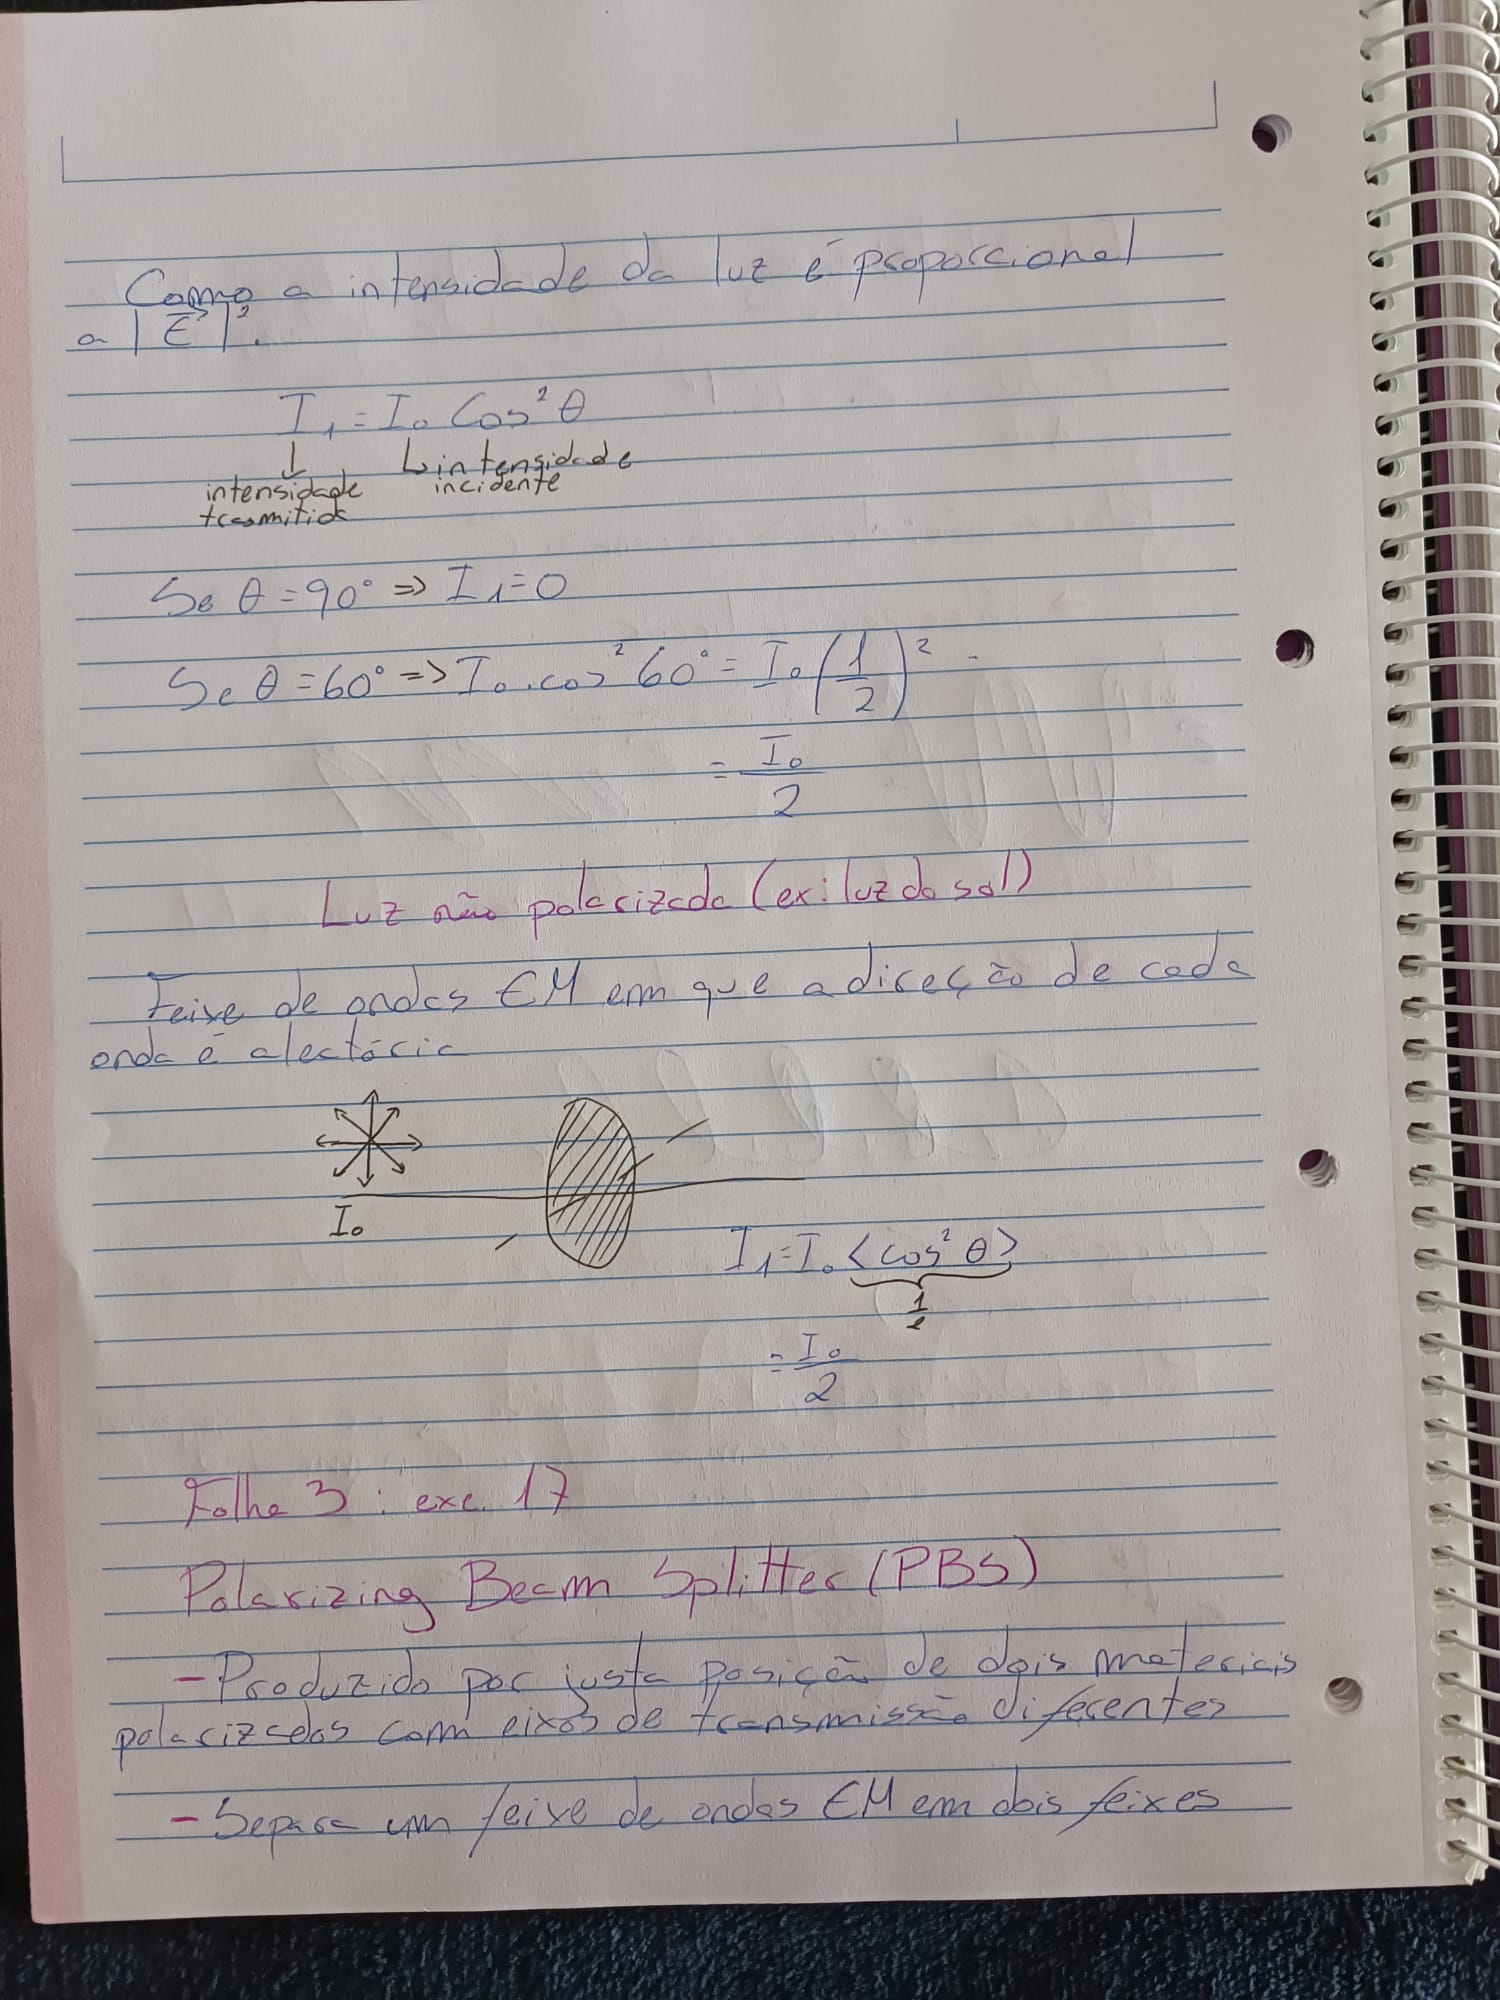 Como a intensidade da luz é proporcional
a |E⃗|².
I₁ = I₀ Cos²θ
↓ ↳ intensidade
intensidade incidente
trasmitida
Se θ = 90° => I₁ = 0
Se θ = 60° => I₀.cos²60° = I₀(1/2)²
= I₀/2
Luz não polarizada (ex: luz do sol)
Feixe de ondas EM em que a direção de cada
onda é alectória
I₀
I₁ = I₀ <cos²θ>
1/2
= I₀/2
Folha 3 : exc. 17
Polarizing Beam Splitter (PBS)
- Produzido por justa posição de dois materiais
polarizados com eixos de transmissão diferentes
- Separa um feixe de ondas EM em dois feixes